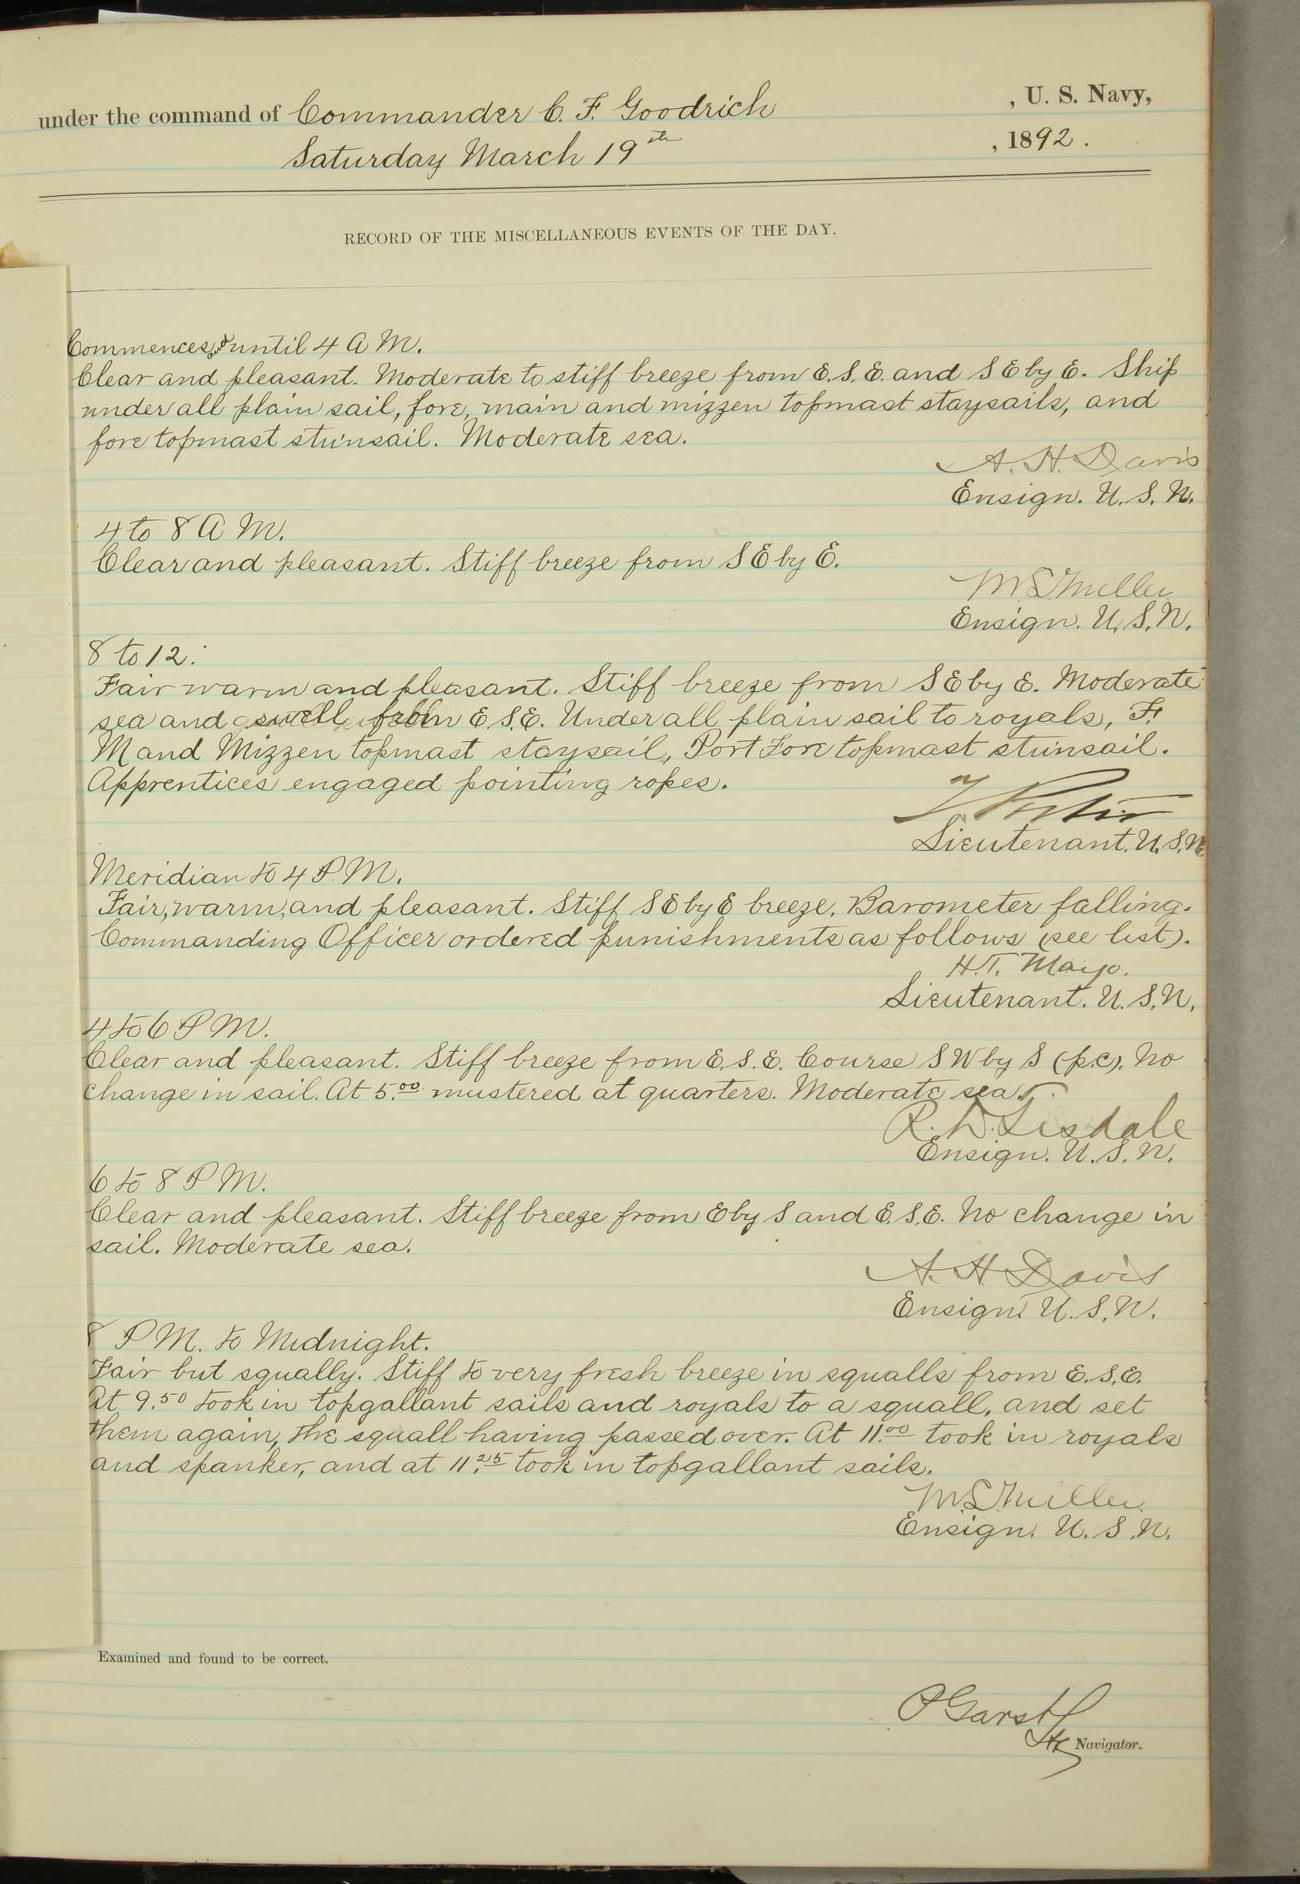 under the command of Commander C. F. Goodrich , U. S. Navy,
Saturday March 19th , 1892.
RECORD OF THE MISCELLANEOUS EVENTS OF THE DAY.
Commences & until 4 A M.
Clear and pleasant. Moderate to stiff breeze from E.S.E. and S E by E. Ship
under all plain sail, fore, main and mizzen topmast staysails, and
fore topmast stu'nsail. Moderate sea.
A. H. Davis
Ensign. U. S. N.
4 to 8 A M.
Clear and pleasant. Stiff breeze from S E by E.
M L Miller
Ensign. U. S. N.
8 to 12.
Fair warm and pleasant. Stiff breeze from S E by E. Moderate
sea and swell from E. S. E. Under all plain sail to royals, F.
M and Mizzen topmast staysail, Port Fore topmast stunsail.
Apprentices engaged pointing ropes.
Lieutenant. U. S. N.
Meridian to 4 P. M.
Fair, warm, and pleasant. Stiff S E by E breeze. Barometer falling.
Commanding Officer ordered punishments as follows (see list).
H. T. Mayo.
Lieutenant. U. S. N.
4 to 6 P M.
Clear and pleasant. Stiff breeze from E. S. E. Course S W by S (p.c). No
change in sail. At 5.00 mustered at quarters. Moderate sea.
R. D. Tisdale
Ensign. U. S. N.
6 to 8 P M.
Clear and pleasant. Stiff breeze from E by S and E. S. E. No change in
sail. Moderate sea.
A. H. Davis
Ensign U. S. N.
8 P M. to Midnight.
Fair but squally. Stiff to very fresh breeze in squalls from E. S. E.
At 9.50 took in topgallant sails and royals to a squall, and set
them again, the squall having passed over. At 11.00 took in royals
and spanker, and at 11.25 took in topgallant sails.
M L Miller
Ensign. U. S. N.
Examined and found to be correct.
P Garst
Navigator.